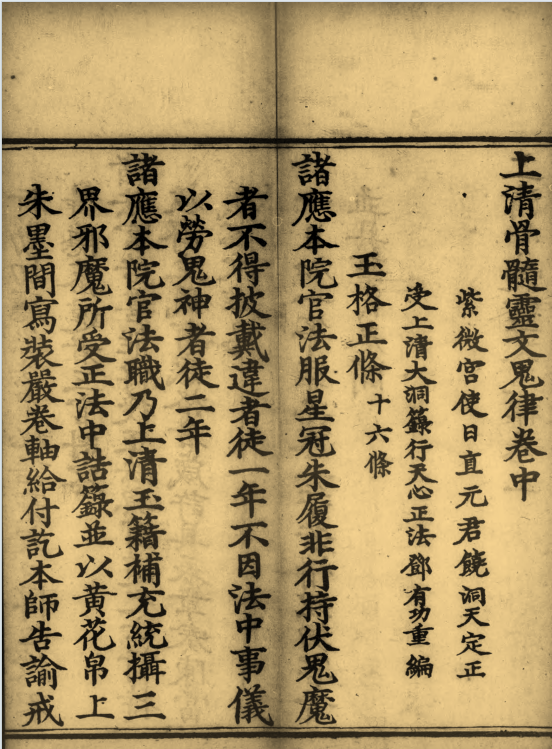 上清骨髓靈文鬼律卷中
紫微宮使日直元君饒洞天定正
受上清大洞籙行天心正法鄧有功重編
玉格正條十六條
諸應本院官法服星冠朱履非行持伏鬼魔
者不得披戴違者徒一年不因法中事儀
以勞鬼神者徒二年
諸應本院官法職乃上清玉籍補充統攝三
界邪魔所受正法中誥籙並以黃花帛上
朱墨間寫裝嚴卷軸給付訖本師告諭戒